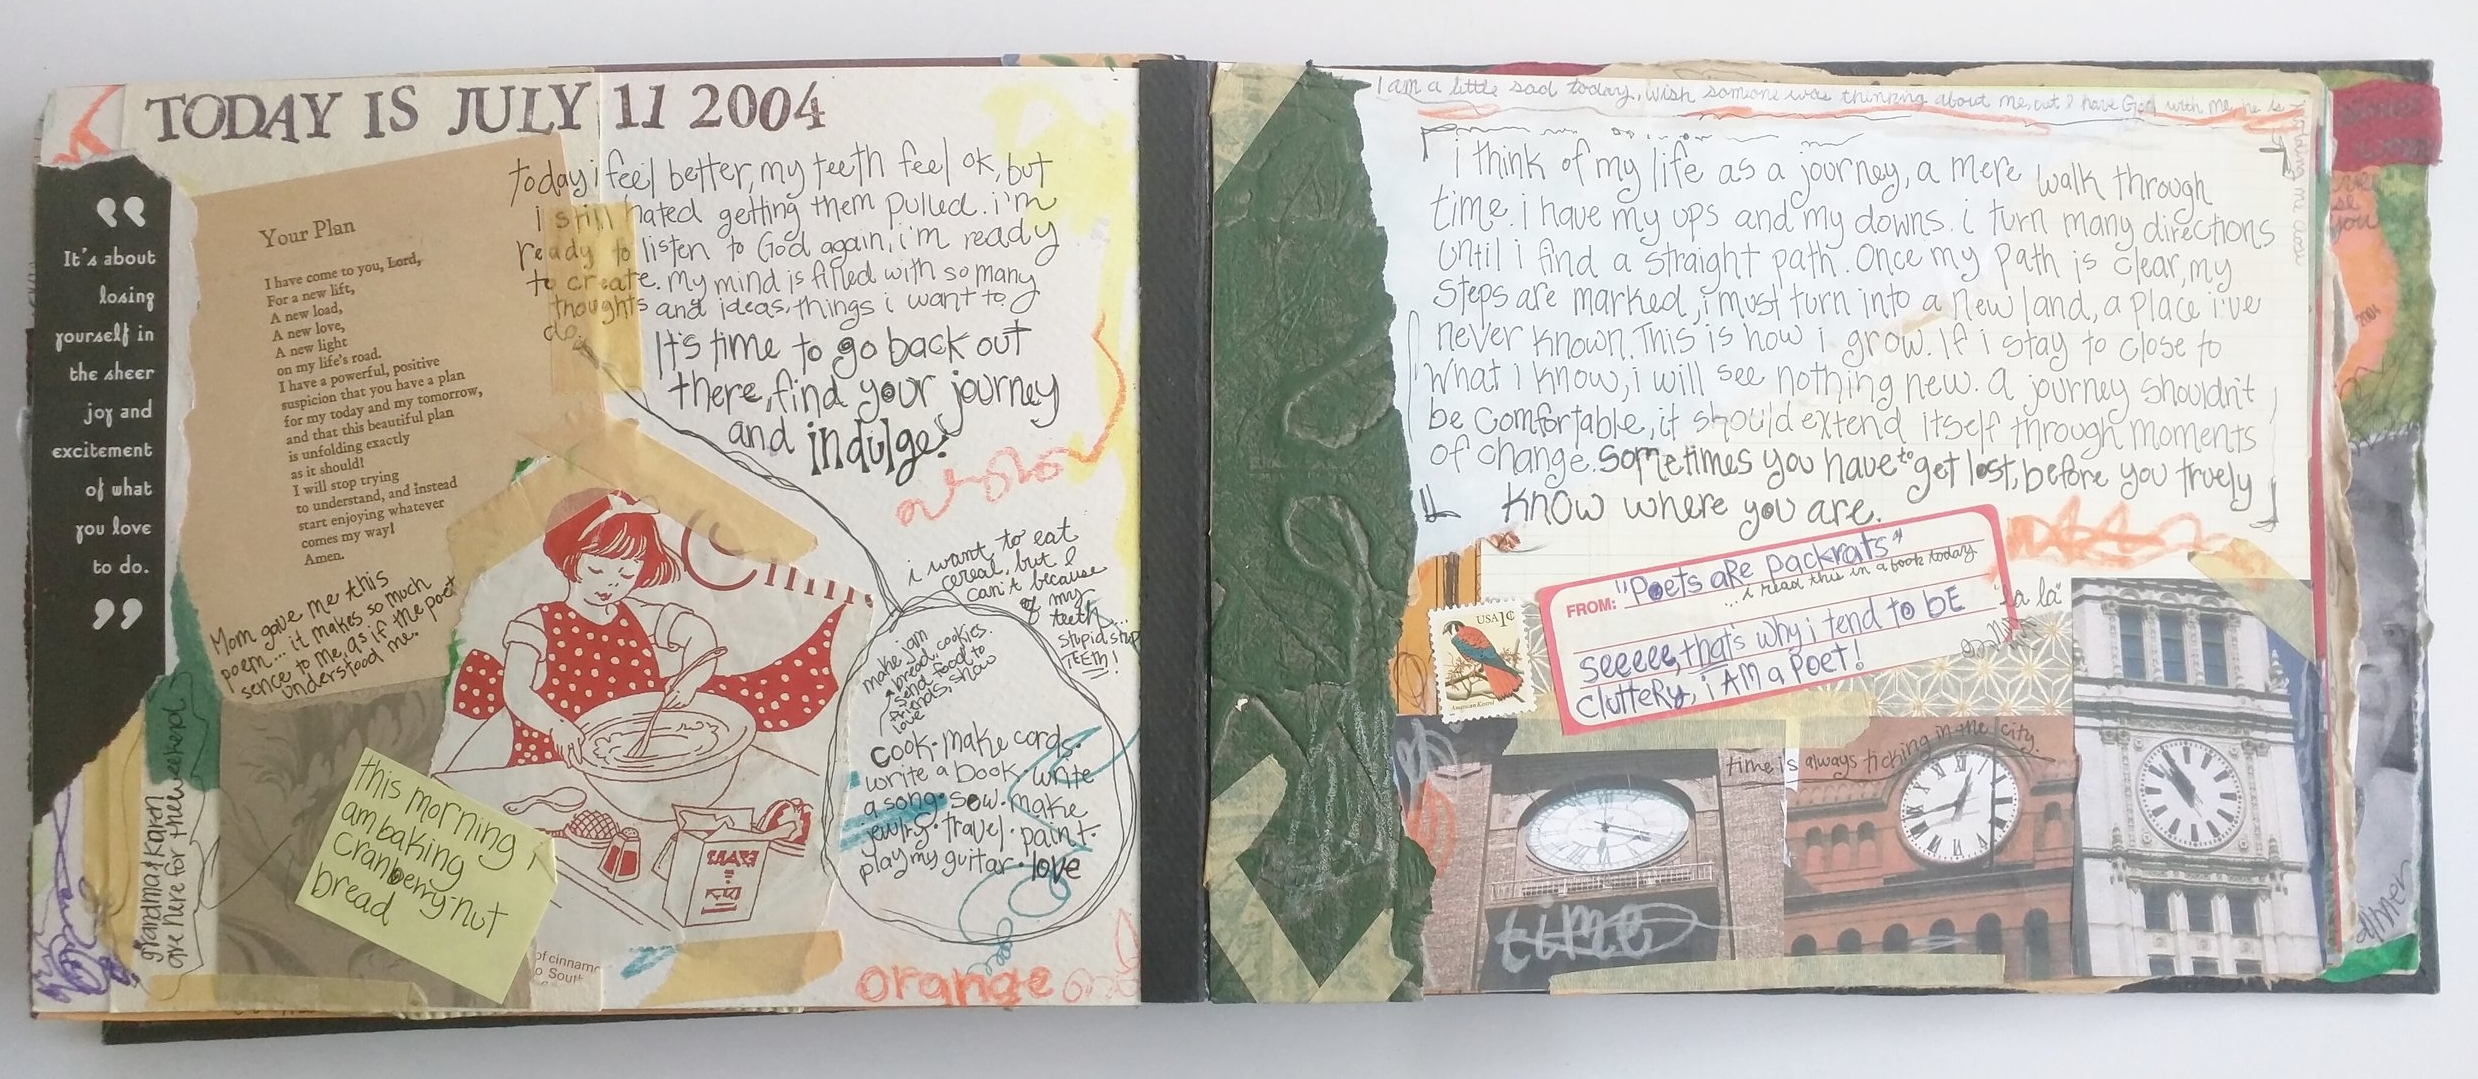 TODAY IS JULY 11 2004
“
It's about
losing
yourself in
the sheer
joy and
excitement
of what
you love
to do.
”
Your Plan
I have come to you, Lord,
For a new lift,
A new load,
A new love,
A new light
on my life's road.
I have a powerful, positive
suspicion that you have a plan
for my today and my tomorrow,
and that this beautiful plan
is unfolding exactly
as it should!
I will stop trying
to understand, and instead
start enjoying whatever
comes my way!
Amen.
Mom gave me this
poem... it makes so much
sence to me, as if the poet
understood me.
today i feel better, my teeth feel ok, but
i still hated getting them pulled. i'm
ready to listen to God again, i'm ready
to create. my mind is filled with so many
thoughts and ideas, things i want to
do.
It's time to go back out
there, find your journey
and indulge!
i want to eat
cereal, but I
can't because
of my
teeth...
stupid, stupid
tEEth!
make jam
& bread, cookies.
send food to
friends, show
love
cook • make cards •
write a book, write
a song • sew • make
jewlry • travel • paint •
play my guitar • love
Cinn
this morning i
am baking
cranberry-nut
bread
grandma & karen
are here for the weekend.
of cinnamo
o South
orange
I am a little sad today, wish someone was thinking about me, but I have God with me, he is
i think of my life as a journey, a mere walk through
time. i have my ups and my downs. i turn many directions
until i find a straight path. Once my path is clear, my
steps are marked, i must turn into a new land, a place i've
never known. This is how i grow. If i stay to close to
what I know, i will see nothing new. a journey shouldn't
be comfortable, it should extend itself through moments
of change. Sometimes you have to get lost, before you truely
know where you are.
FROM: "Poets aRe packrats"
... i read this in a book today
seeeee, that's why i tend to bE
clutteRy, i AM a poet!
"la la"
USA 1¢
American Kestrel
time is always ticking in the city.
time
2004
you
dinner